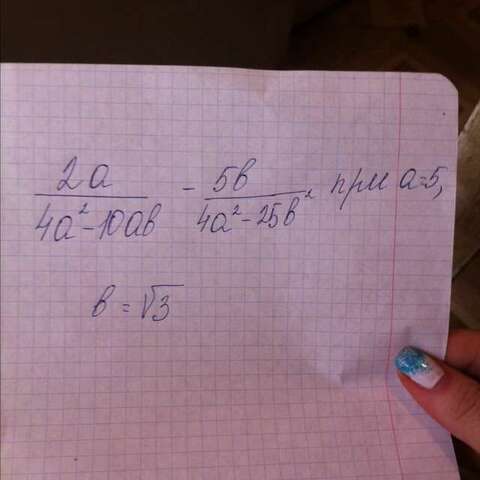 2a/(4a²-10ab) - 5b/(4a²-25b²) при a=5,
b=√3